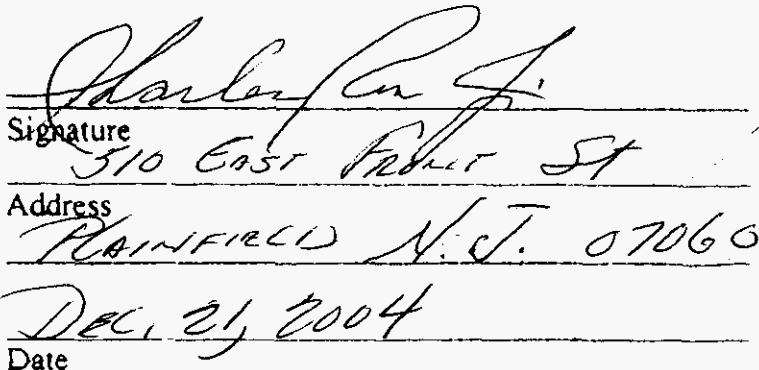 Charles Jr.
Signature
510 EAST FRONT St
Address
PLAINFIELD N.J. 07060
DEC, 21, 2004
Date